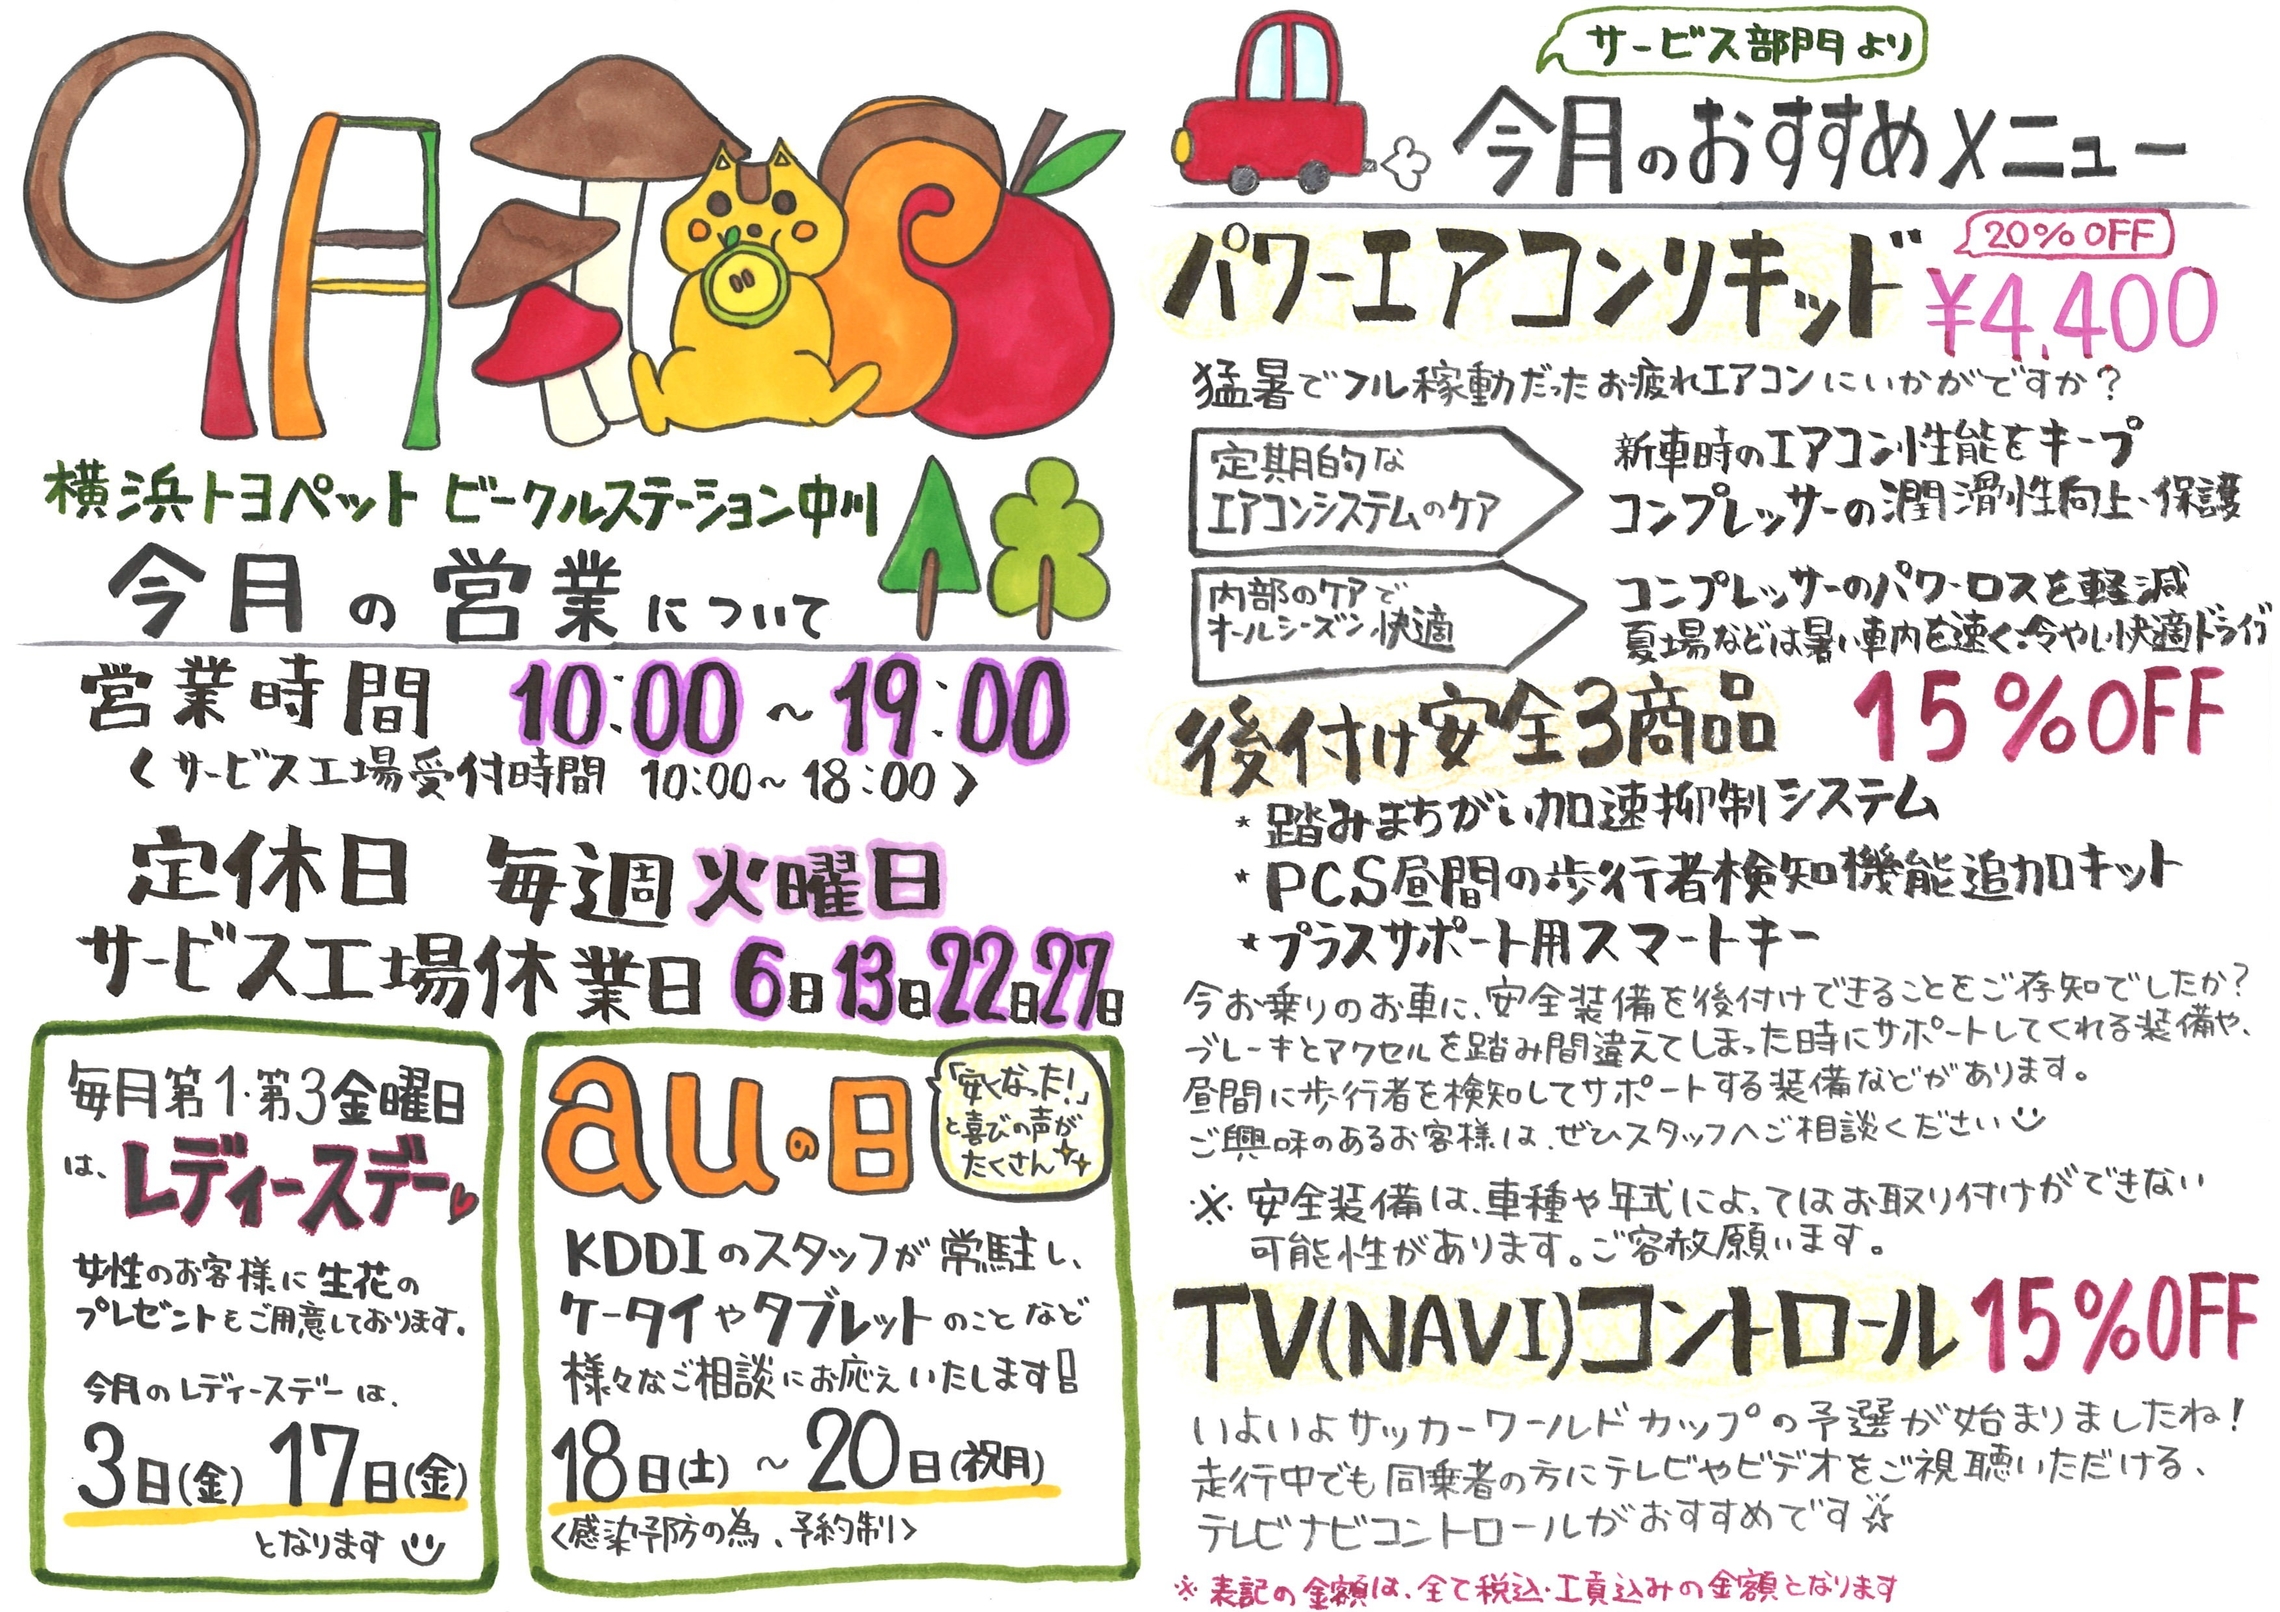 9月
横浜トヨペット ビークルステーション中川
今月の営業について
営業時間 10:00~19:00
<サービス工場受付時間 10:00~18:00>
定休日 毎週火曜日
サービス工場休業日 6日13日22日27日
毎月第1・第3金曜日
は、レディースデー
女性のお客様に生花の
プレゼントをご用意しております。
今月のレディースデーは、
3日(金) 17日(金)
となります
auの日
「安くなった!」
と喜びの声が
たくさん
KDDIのスタッフが常駐し、
ケータイやタブレットのことなど
様々なご相談にお応えいたします!
18日(土)~20日(祝月)
<感染予防の為、予約制>
サービス部門より
今月のおすすめメニュー
パワーエアコンリキッド
20%OFF
¥4,400
猛暑でフル稼動だったお疲れエアコンにいかがですか?
定期的な
エアコンシステムのケア
新車時のエアコン性能をキープ
コンプレッサーの潤滑性向上・保護
内部のケアで
オールシーズン快適
コンプレッサーのパワーロスを軽減
夏場などは暑い車内を速く冷やし快適ドライブ
後付け安全3商品 15%OFF
*踏みまちがい加速抑制システム
*PCS昼間の歩行者検知機能追加キット
*プラスサポート用スマートキー
今お乗りのお車に、安全装備を後付けできることをご存知でしたか?
ブレーキとアクセルを踏み間違えてしまった時にサポートしてくれる装備や、
昼間に歩行者を検知してサポートする装備などがあります。
ご興味のあるお客様は、ぜひスタッフへご相談ください
※安全装備は、車種や年式によってはお取り付けができない
可能性があります。ご容赦願います。
TV(NAVI)コントロール 15%OFF
いよいよサッカーワールドカップの予選が始まりましたね!
走行中でも同乗者の方にテレビやビデオをご視聴いただける、
テレビナビコントロールがおすすめです☆
※表記の金額は、全て税込・工賃込みの金額となります